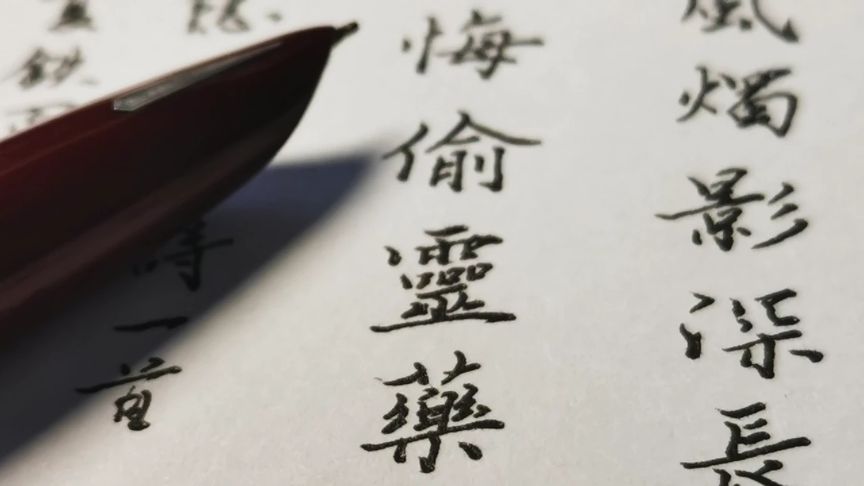 風燭影深長
悔偷靈藥
詩一首